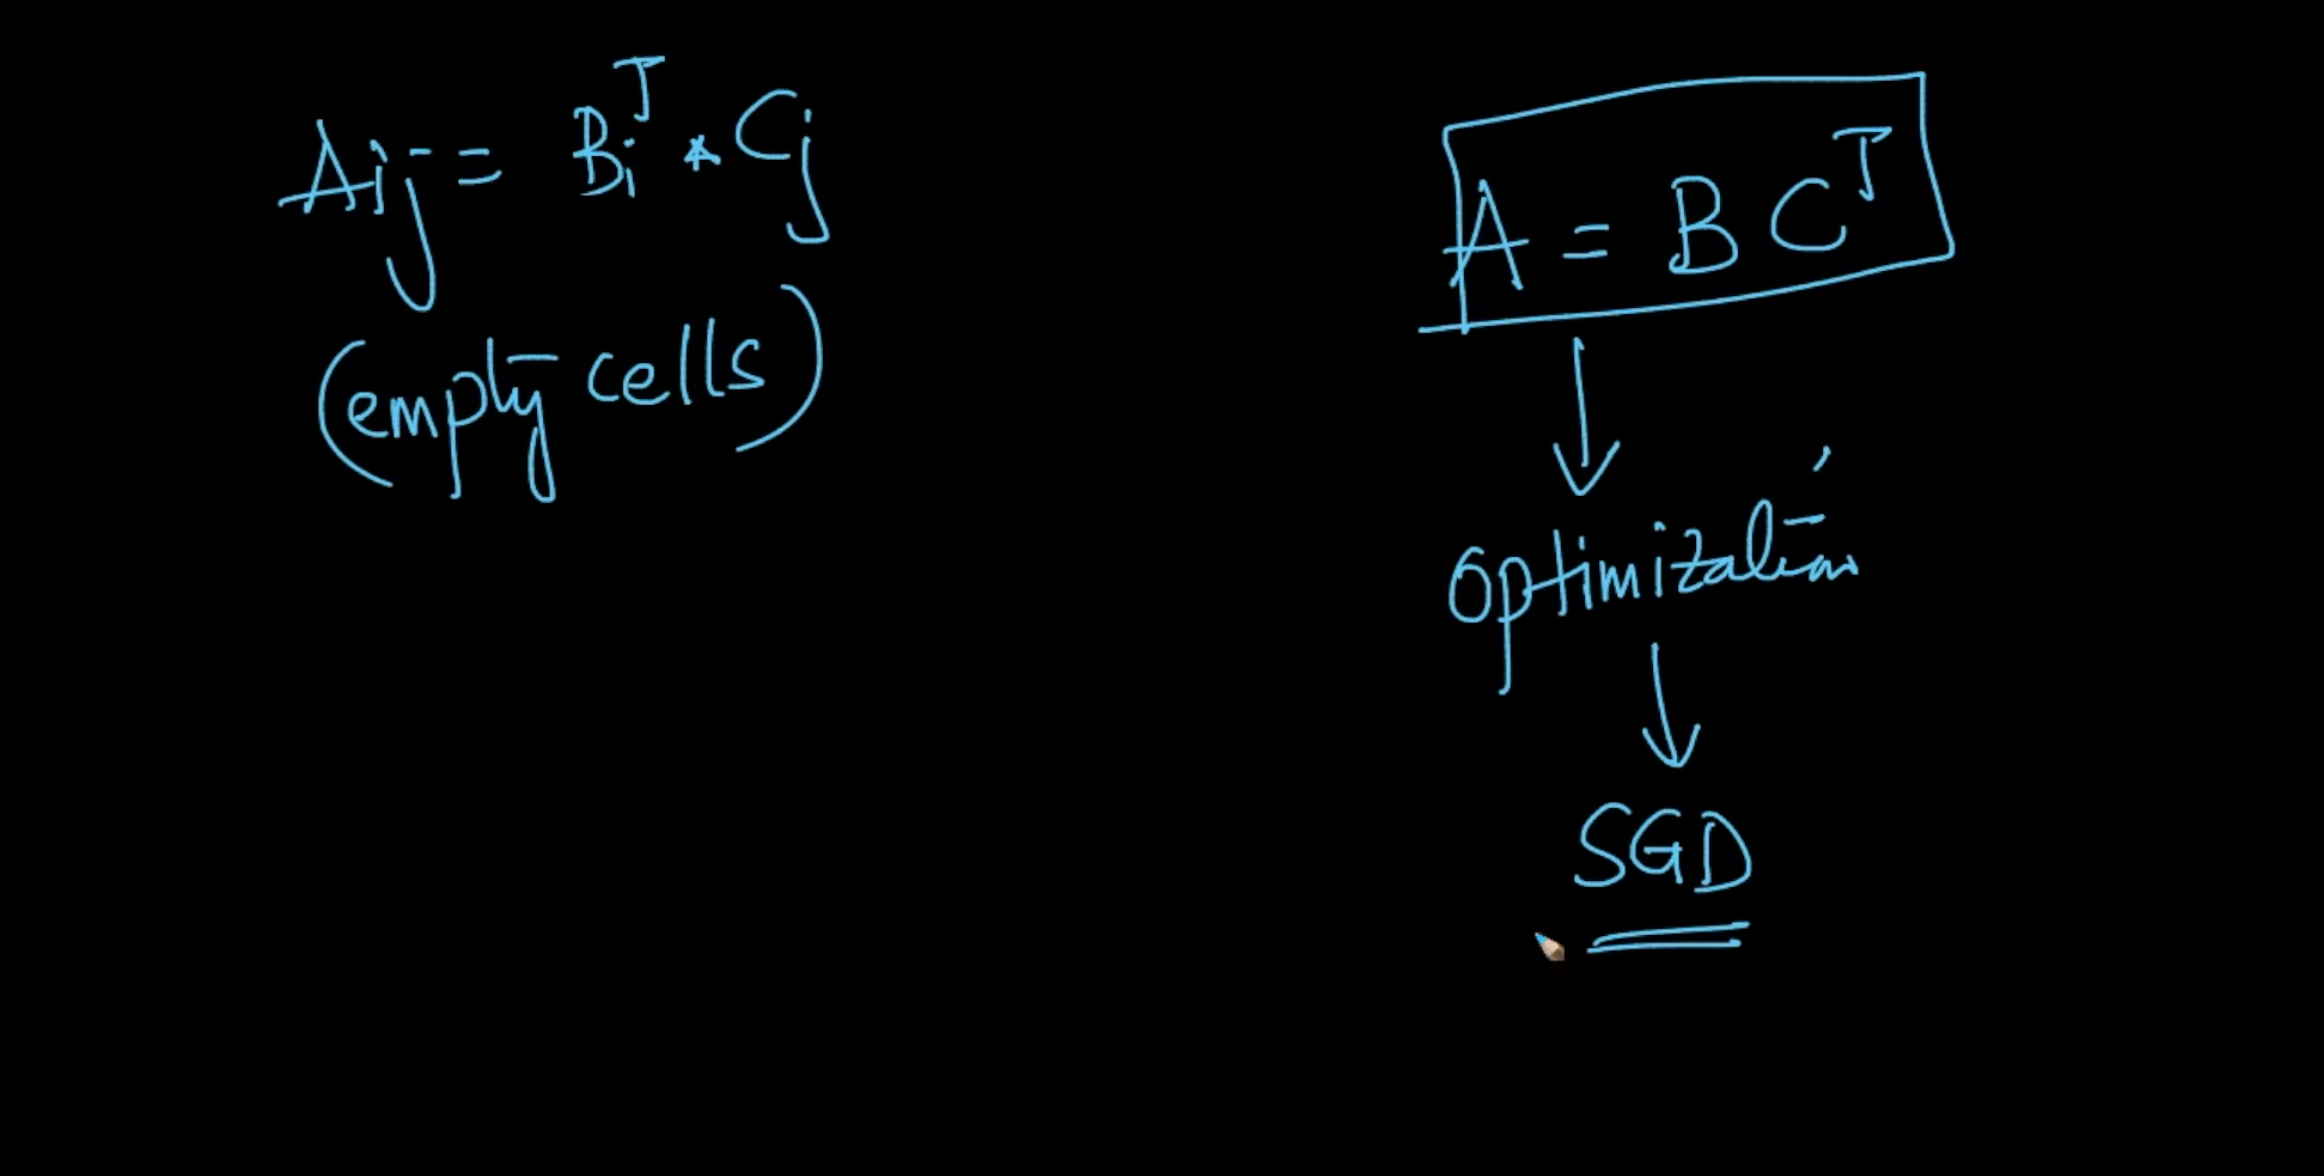 Aij = Bi^T * Cj
(empty cells)
A = B C^T
Optimization
SGD